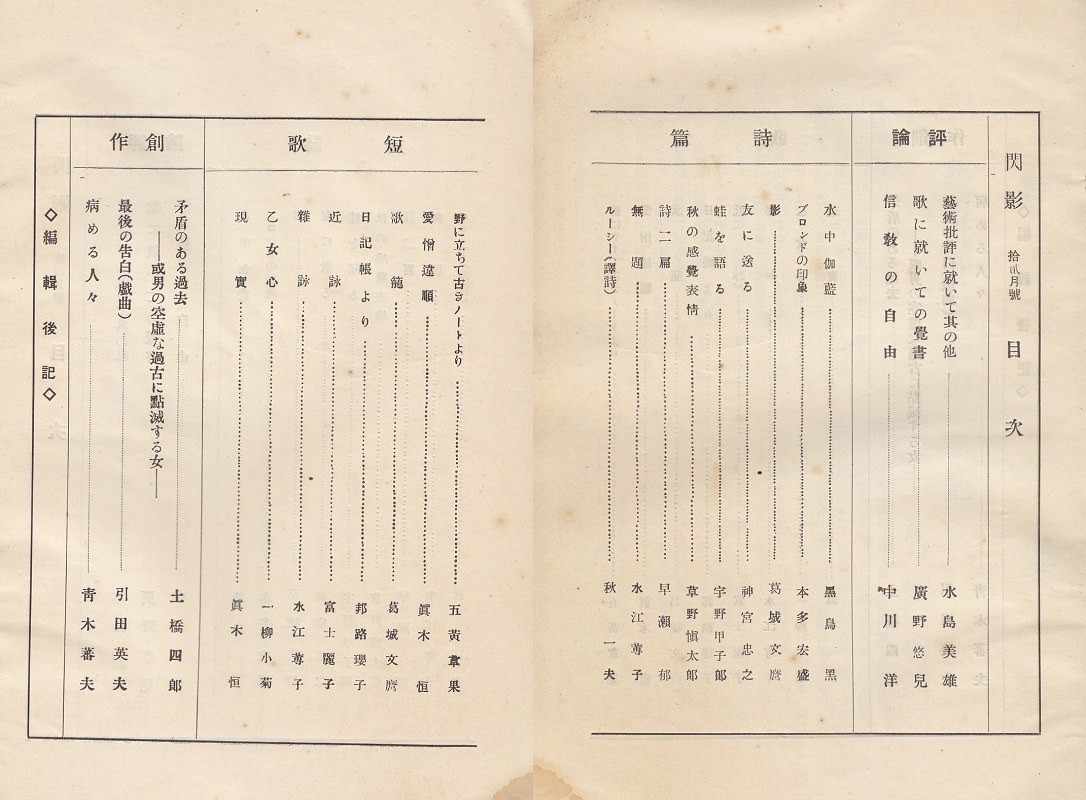 閃影 拾貳月號 目次
評論
藝術批評に就いて其の他 水島美雄
歌に就いての覺書 廣野悠兒
信教の自由 中川洋
詩篇
水中伽藍 黑鳥黑
ブロンドの印象 本多宏盛
影 葛城文麿
友に送る 神宮忠之
蛙を語る 宇野甲子郎
秋の感覺表情 草野愼太郎
詩二扁 早瀬郁
無題 水江蓴子
ルーシー(譯詩) 秋一夫
短歌
野に立ちて古きノートより 五黃韋果
愛僧違順 眞木恒
歌籠 葛城文麿
日記帳より 邦路瓔子
近詠 富士麗子
雜詠 水江蓴子
乙女心 一柳小菊
現實 眞木恒
創作
矛盾のある過去 土橋四郎
――或男の空虛な過古に點滅する女――
最後の告白(戲曲) 引田英夫
病める人々 靑木蕃夫
◇編輯後記◇